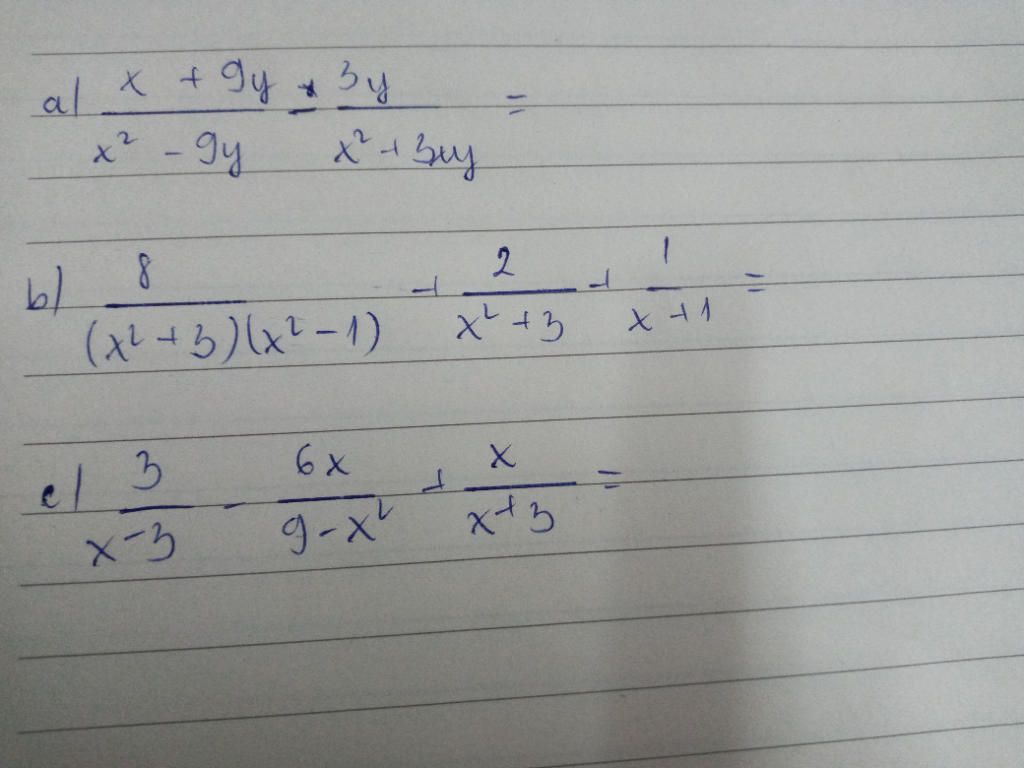 a) x + 9y / x² - 9y - 3y / x² + 3xy =
b) 8 / (x² + 3)(x² - 1) + 2 / x² + 3 + 1 / x + 1 =
c) 3 / x - 3 - 6x / 9 - x² + x / x + 3 =